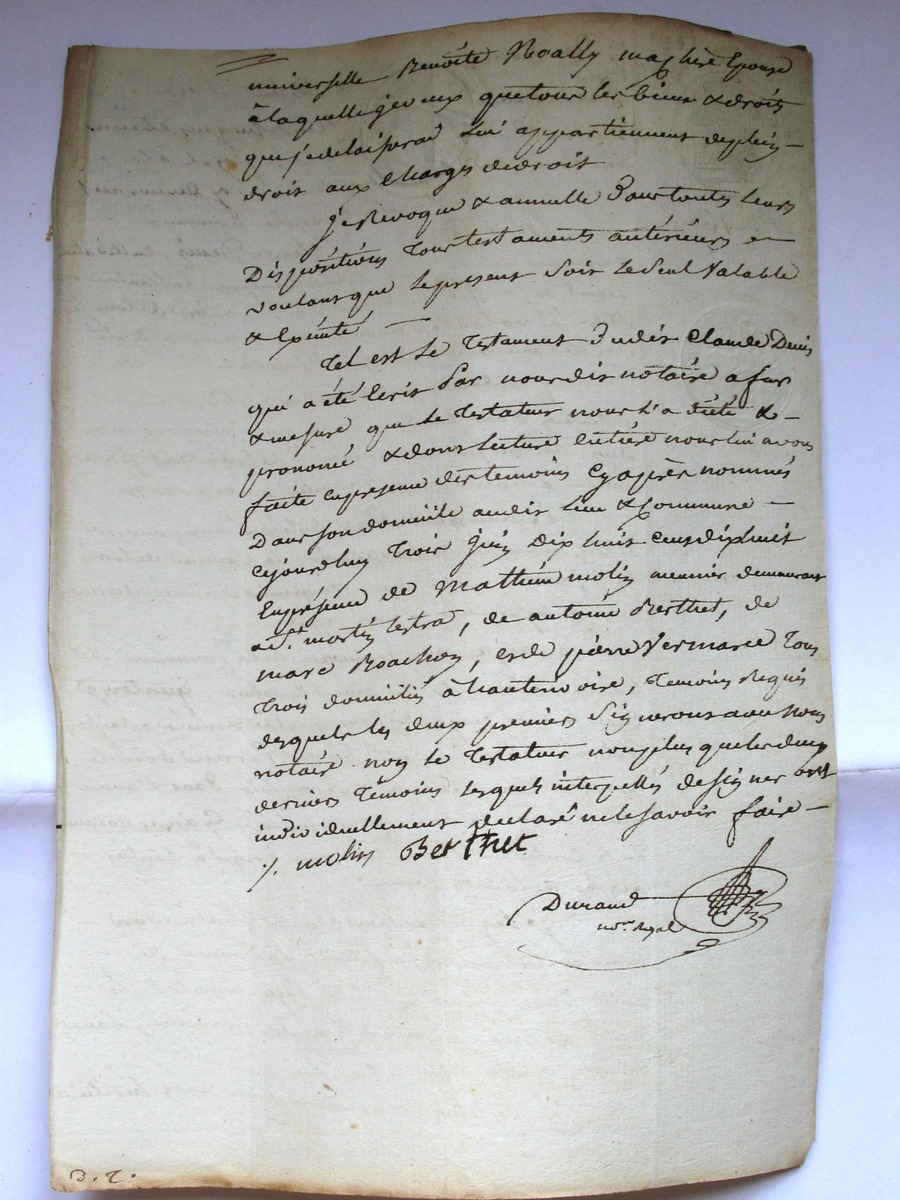 universelle Benoite Noally ma chère Epouse
à laquelle je veux que tous les biens & droits
que je delaisserai lui appartiennent de plein
droit aux Charges de droit
Je Revoque & annulle dans toutes leurs
Dispositions tous testaments antérieurs
voulant que le present soit le seul Valable
&
Tel est le Testament dudit Claude Denis
qui a été Ecrit par nous dit notaire a fur
& mesure que le Testateur nous l'a dicté &
prononcé & dont lecture entière nous lui avons
faite en presence des temoins Cy après nommés
Dans son domicile audit lieu & Commune
Cejourdhuy trois juin Dix huit cent dix huit
En présence de Mathieu molin meunier demeurant
a St. martin lestra, de antoine Berthet, de
marc, et de pierre Vermare tous
trois domiciliés à hauterivoire, Temoins Requis
desquels les deux premiers signeront avec nous
notaire non le Testateur non plus que les deux
derniers Temoins lesquels interpellés de signer ont
individuellement declaré ne le savoir faire
molin Berthet
Durand
nore. Royal
D. T.